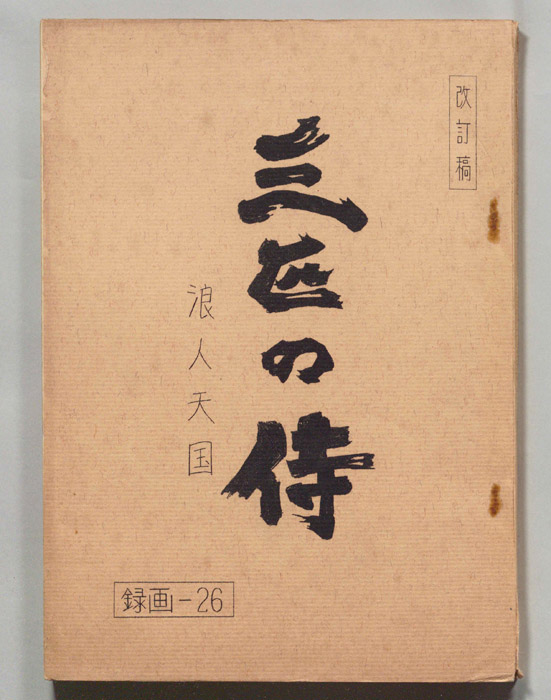 改訂稿
三匹の侍
浪人天国
録画-26